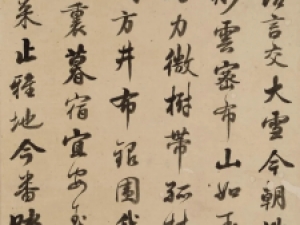 言交大雪今朝
雲密布山如玉
力微樹帶孤村
方井布銀圍
裏暮宿宜安玉
菜止雅地今番